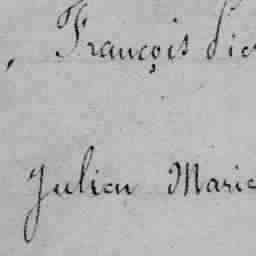 , François
Julien Marie